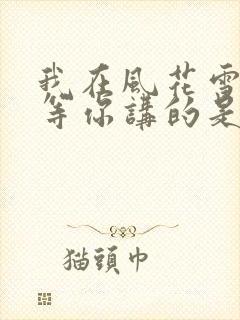 我在風花雪
等你講的是
猫頭巾